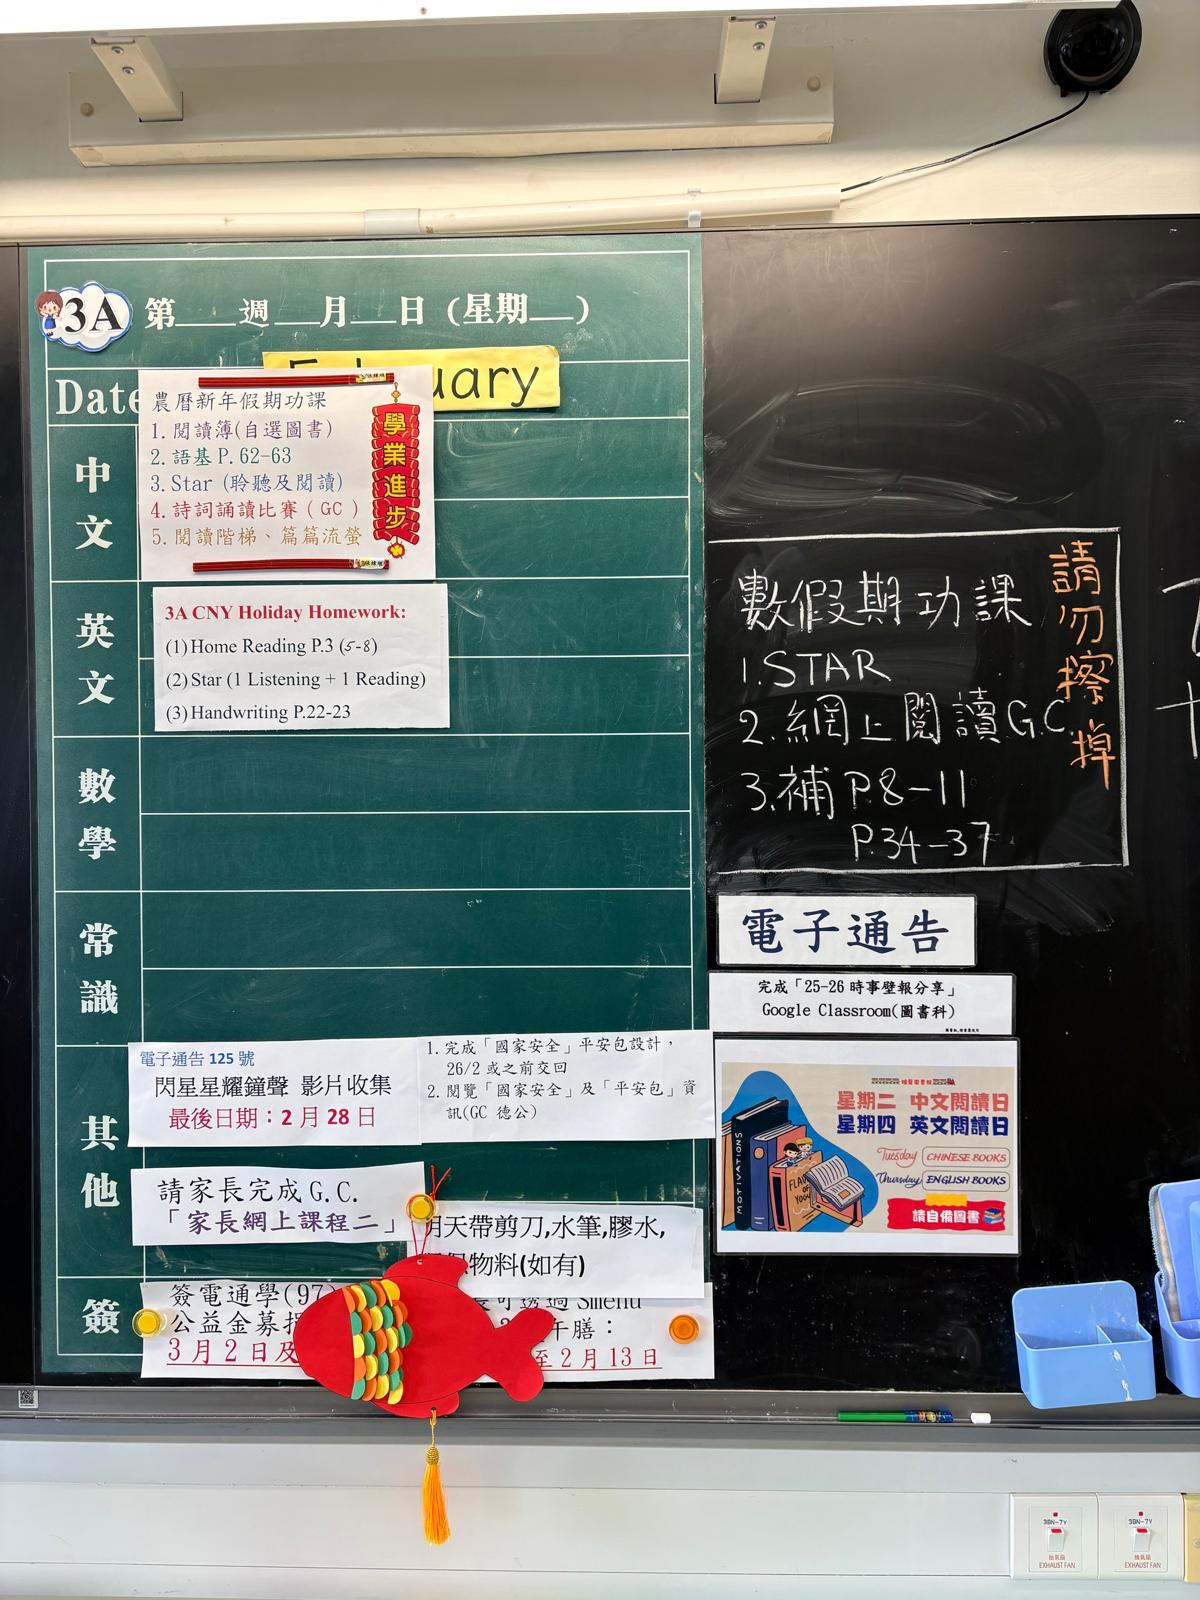 3A 第___週___月___日（星期___）
Date
uary
農曆新年假期功課
1. 閱讀簿(自選圖書)
2. 語基 P. 62-63
3. Star (聆聽及閱讀)
4. 詩詞誦讀比賽 ( GC )
5. 閱讀階梯、篇篇流螢
學業進步
中文
英文
3A CNY Holiday Homework:
(1) Home Reading P.3 (5-8)
(2) Star (1 Listening + 1 Reading)
(3) Handwriting P.22-23
數學
常識
其他
電子通告 125 號
閃星星耀鐘聲 影片收集
最後日期：2 月 28 日
1. 完成「國家安全」平安包設計，
26/2 或之前交回
2. 閱覽「國家安全」及「平安包」資
訊(GC 德公)
請家長完成 G.C.
「家長網上課程二」
明天帶剪刀,水筆,膠水,
物料(如有)
簽
簽電通學(97)
公益金募
3月2日及
可透過 Smenu
午膳：
至2月13日
數假期功課
1. STAR
2. 網上閱讀 G.C.
3. 補 P.8-11
P.34-37
請勿擦掉
電子通告
完成「25-26 時事壁報分享」
Google Classroom(圖書科)
星期二 中文閱讀日
星期四 英文閱讀日
Tuesday CHINESE BOOKS
Thursday ENGLISH BOOKS
請自備圖書
MOTIVATIONS
抽氣扇
EXHAUST FAN
抽氣扇
EXHAUST FAN